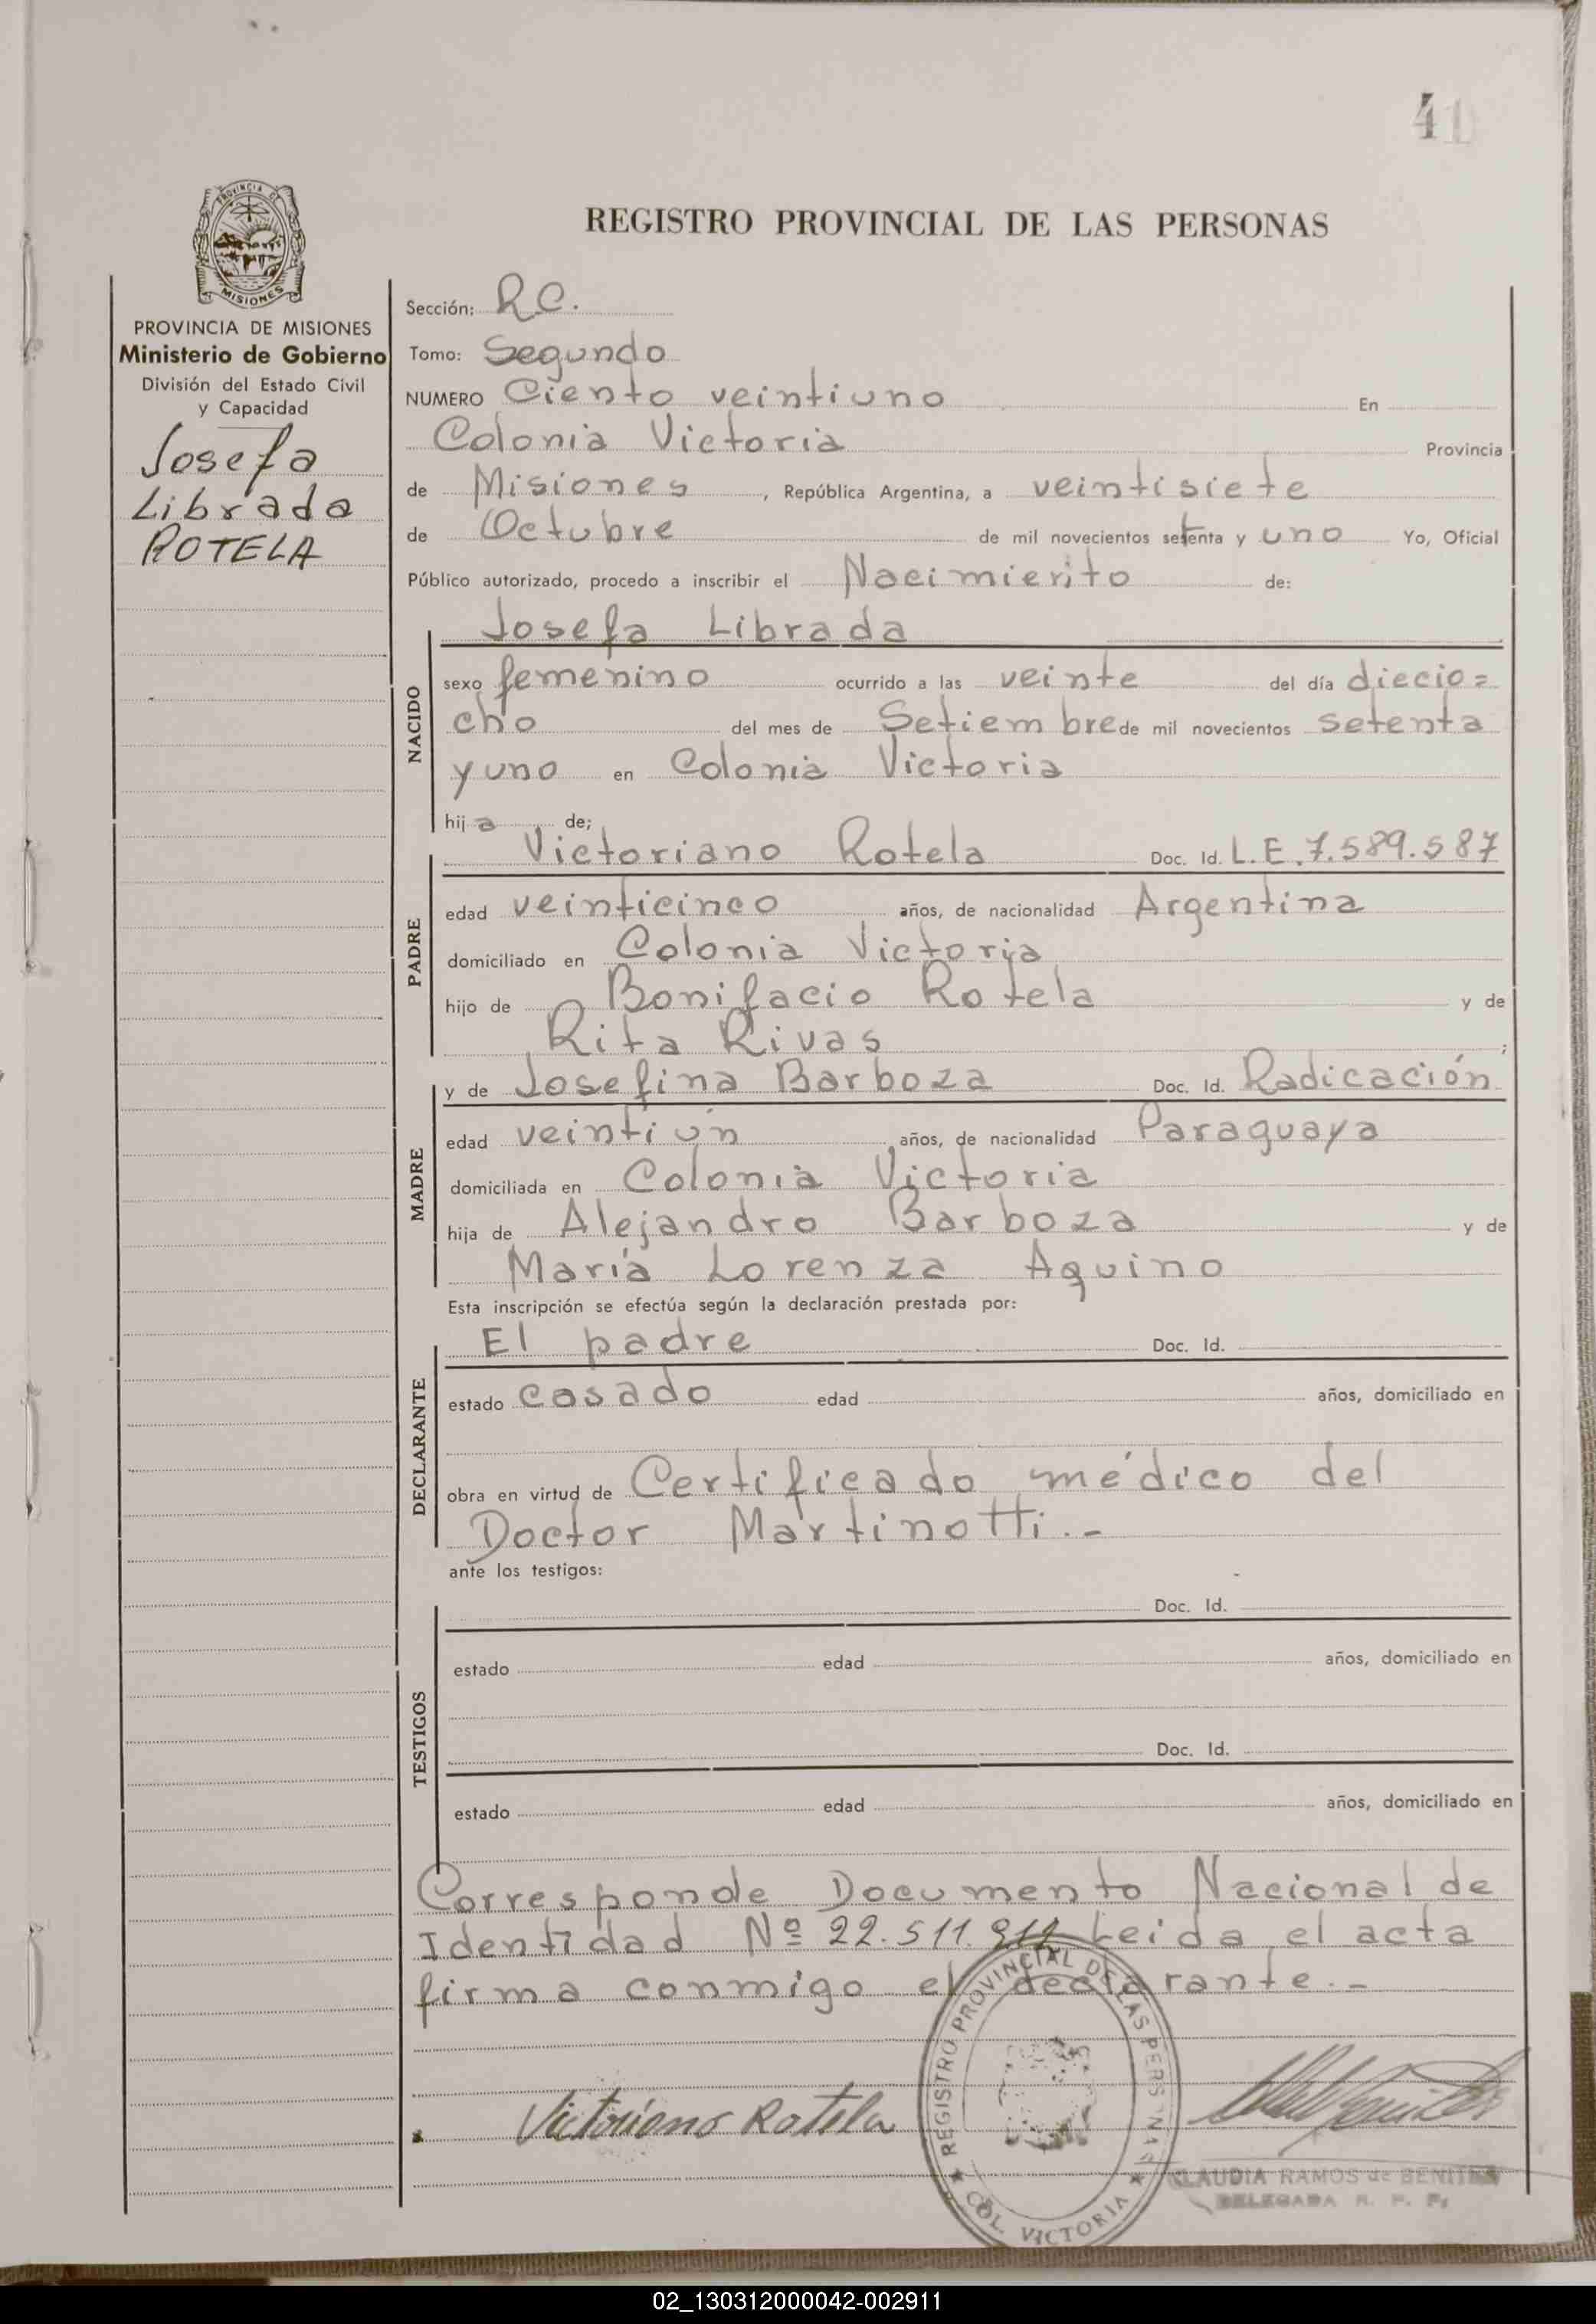 41
REGISTRO PROVINCIAL DE LAS PERSONAS
PROVINCIA DE MISIONES
Ministerio de Gobierno
División del Estado Civil
y Capacidad
Josefa
Librada
ROTELA
Sección: R.C.
Tomo: Segundo
NUMERO Ciento veintiuno En
Colonia Victoria Provincia
de Misiones, República Argentina, a veintisiete
de Octubre de mil novecientos setenta y uno Yo, Oficial
Público autorizado, procedo a inscribir el Nacimiento de:
NACIDO
Josefa Librada
sexo femenino ocurrido a las veinte del día diecio=
cho del mes de Setiembre de mil novecientos setenta
y uno en Colonia Victoria
hija de;
PADRE
Victoriano Rotela Doc. Id. L.E. 7.589.587
edad veinticinco años, de nacionalidad Argentina
domiciliado en Colonia Victoria
hijo de Bonifacio Rotela y de
Rita Rivas ;
MADRE
y de Josefina Barboza Doc. Id. Radicación
edad veintiún años, de nacionalidad Paraguaya
domiciliada en Colonia Victoria
hija de Alejandro Barboza y de
María Lorenza Aquino
Esta inscripción se efectúa según la declaración prestada por:
DECLARANTE
El padre Doc. Id.
estado casado edad años, domiciliado en
obra en virtud de Certificado médico del
Doctor Martinotti.-
ante los testigos:
TESTIGOS
Doc. Id.
estado edad años, domiciliado en
Doc. Id.
estado edad años, domiciliado en
Corresponde Documento Nacional de
Identidad Nº 22.511. Leida el acta
firma conmigo el declarante.-
Victoriano Rotela
REGISTRO PROVINCIAL DE LAS PERSONAS
COL. VICTORIA
CLAUDIA RAMOS de BENITEZ
DELEGADA R. P. P.
02_130312000042-002911